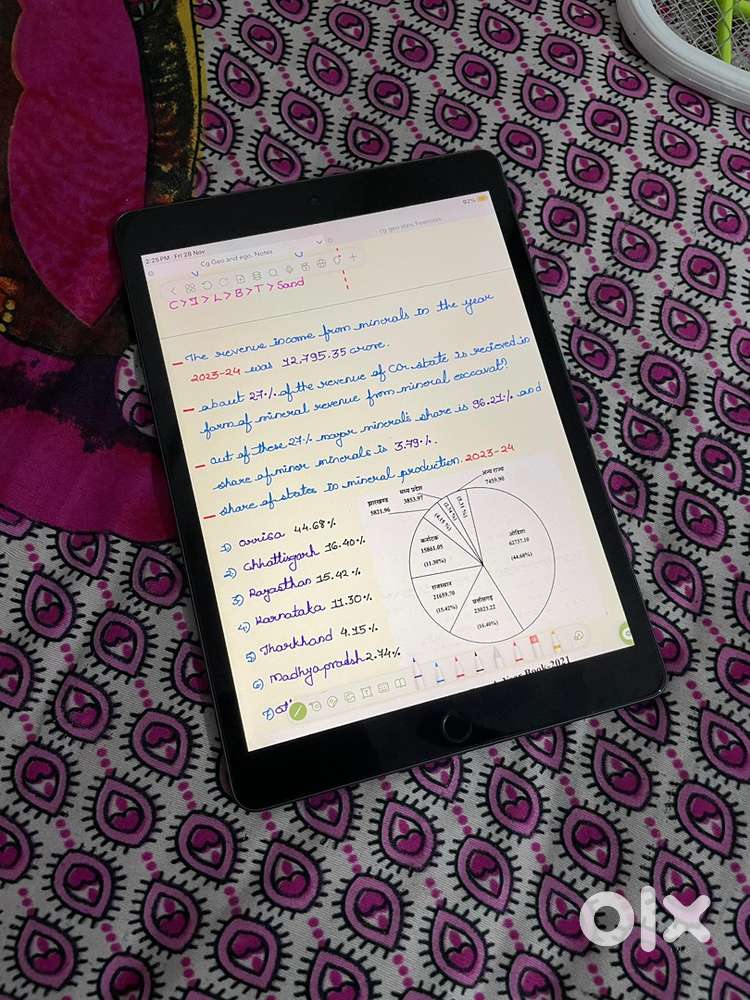 2:25 PM Fri 28 Nov
92%
Cg Geo and ego. Notes
C > I > L > B > T > Sand
– The revenue income from minerals in the year
2023-24 was 12,795.35 crore.
– about 27% of the revenue of CG state is recieved in
form of mineral revenue from mineral
– out of these 27% major minerals share is 96.21% and
share of minor minerals is 3.79%.
– share of states in mineral production. 2023-24
1) orrisa 44.68%
2) Chhattisgarh 16.40%
3) Rajasthan 15.42%
4) Karnataka 11.30%
5) Jharkhand 4.15%
6) Madhya pradesh 2.74%
7)
झारखण्ड
5821.96
मध्य प्रदेश
3853.97
अन्य राज्य
7459.90
(4.15 %)
(2.74 %)
(5.31 %)
ओडिशा
62737.10
(44.68%)
कर्नाटक
15861.05
(11.30%)
राजस्थान
21659.70
(15.42%)
छत्तीसगढ़
23023.22
(16.40%)
Book-2021
olx